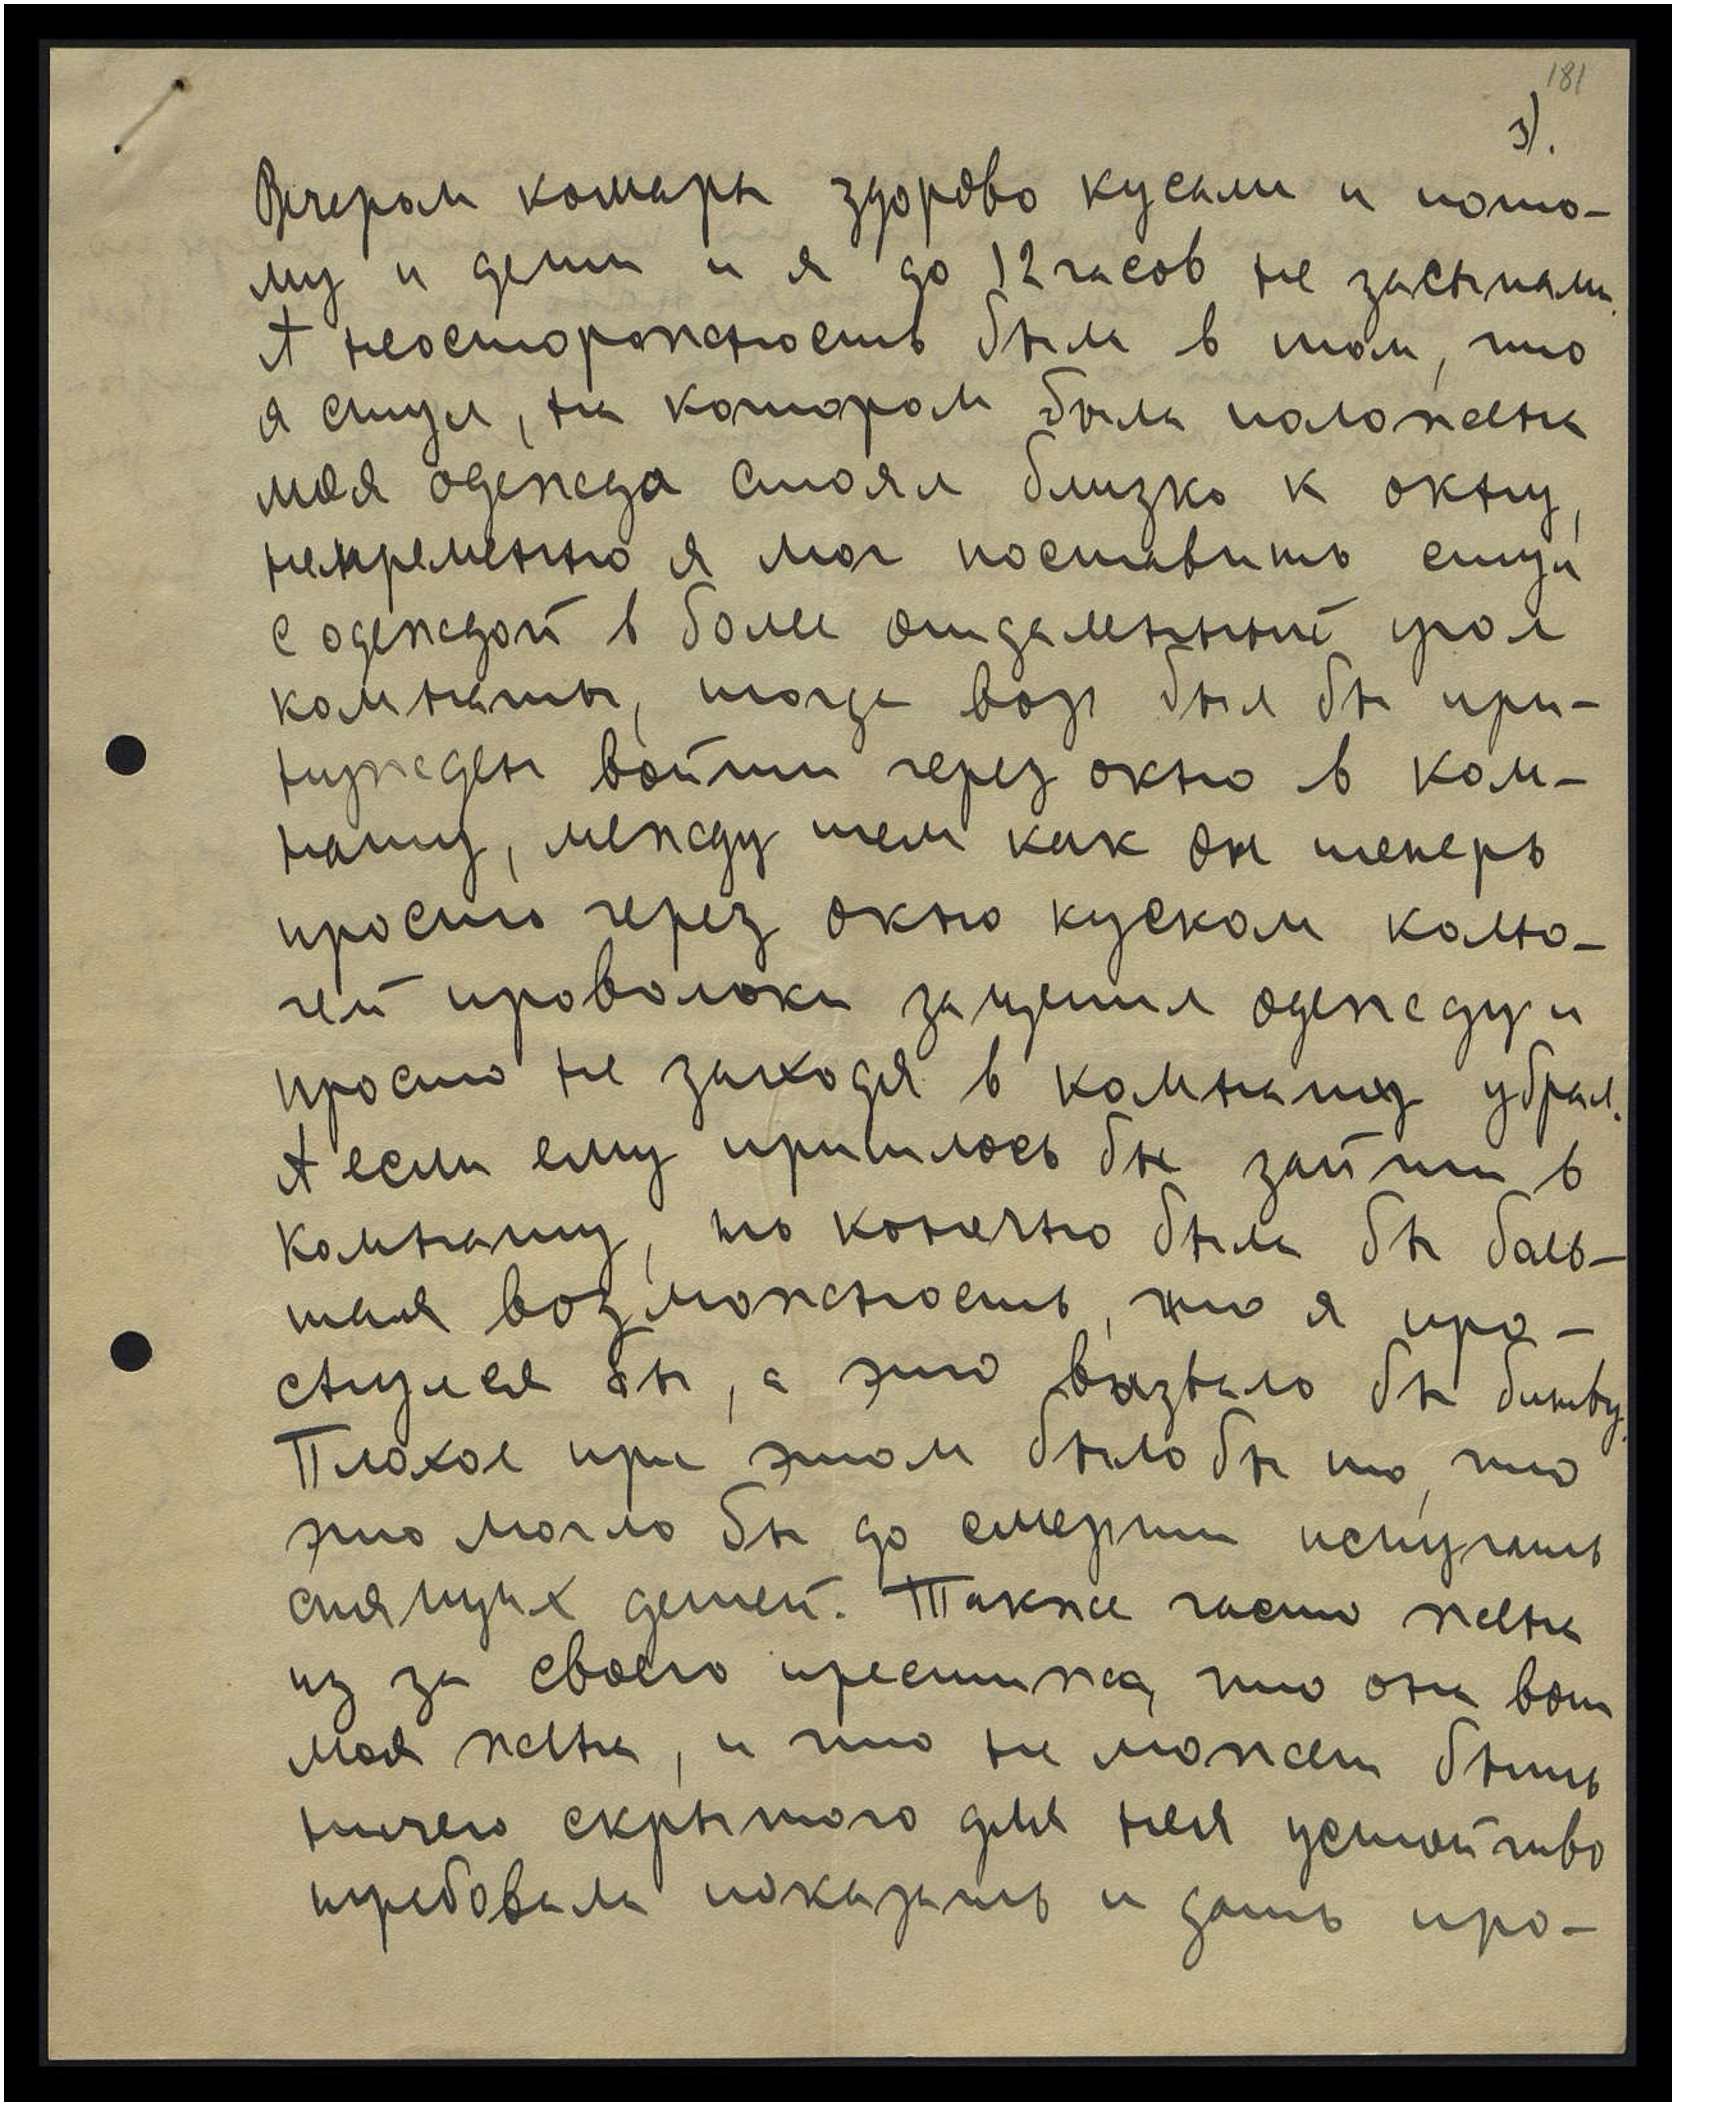 181
3).
Вечером комары здорово кусали и пото-
му и дети и я до 12 часов не засыпали.
А неосторожность была в том, что
я стул, на котором была положена
моя одежда стоял близко к окну,
непременно я мог поставить стул
с одеждой в более отдаленный угол
комнаты, тогда вор был бы при-
нужден войти через окно в ком-
нату, между тем как он теперь
просто через окно куском колю-
чей проволоки зацепил одежду и
просто не заходя в комнату убрал.
А если ему пришлось бы зайти в
комнату, то конечно была бы боль-
шая возможность, что я про-
снулся бы, а это вызвало бы битву.
Плохое при этом было бы то, что
это могло бы до смерти испугать
спящих детей. Также часто жена
из за своего престижа, что она вот
моя жена, и что не может быть
ничего скрытого для нея устойчиво
требовала показать и дать про-